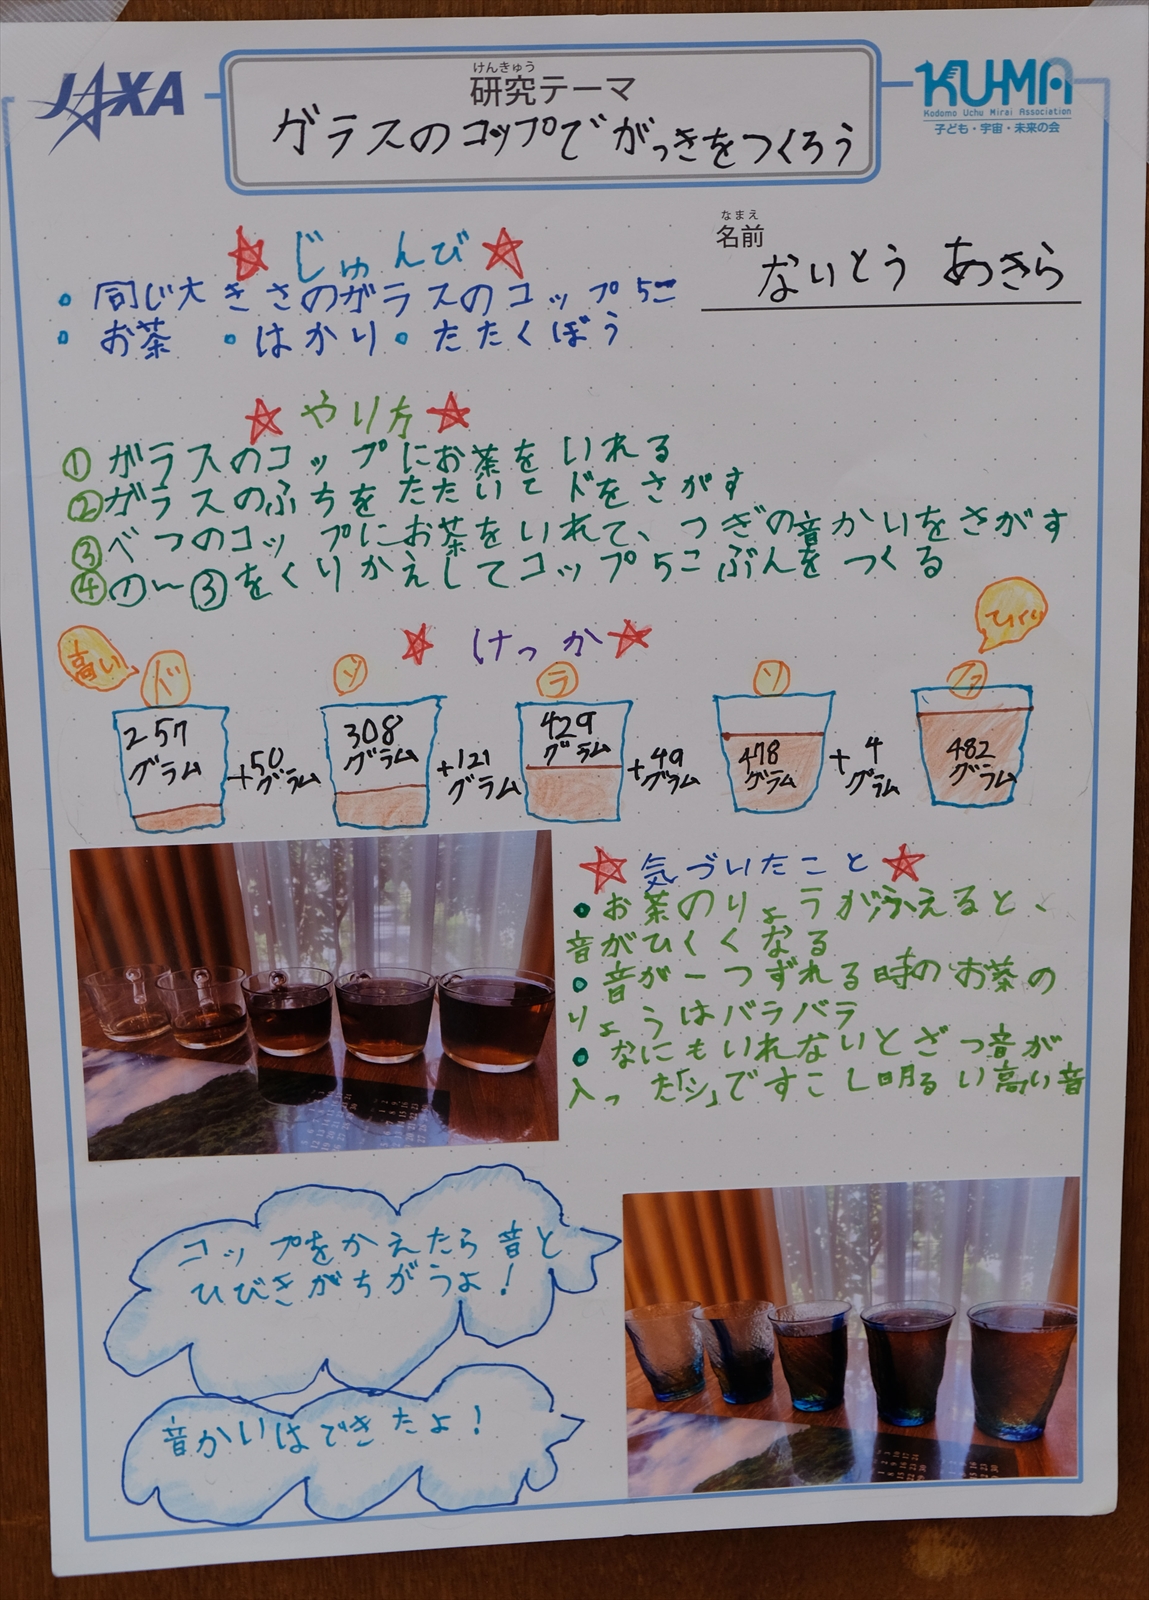 JAXA
けんきゅう
研究テーマ
ガラスのコップでがっきをつくろう
KU-MA
Kodomo Uchu Mirai Association
子ども・宇宙・未来の会
なまえ
名前
ないとう あきら
じゅんび
・同じ大きさのガラスのコップ5こ
・お茶 ・はかり・たたくぼう
やり方
①ガラスのコップにお茶をいれる
②ガラスのふちをたたいてドをさがす
③べつのコップにお茶をいれて、つぎの音かいをさがす
④の〜③をくりかえしてコップ5こぶんをつくる
けっか
高い
ひくい
ド
シ
ラ
ソ
ファ
257グラム
+50グラム
308グラム
+121グラム
429グラム
+49グラム
478グラム
+4グラム
482グラム
気づいたこと
・お茶のりょうがふえると、
音がひくくなる
・音が一つずれる時のお茶の
りょうはバラバラ
・なにもいれないとざつ音が
入った「シ」ですこし明るい高い音
コップをかえたら音と
ひびきがちがうよ!
音かいはできたよ!